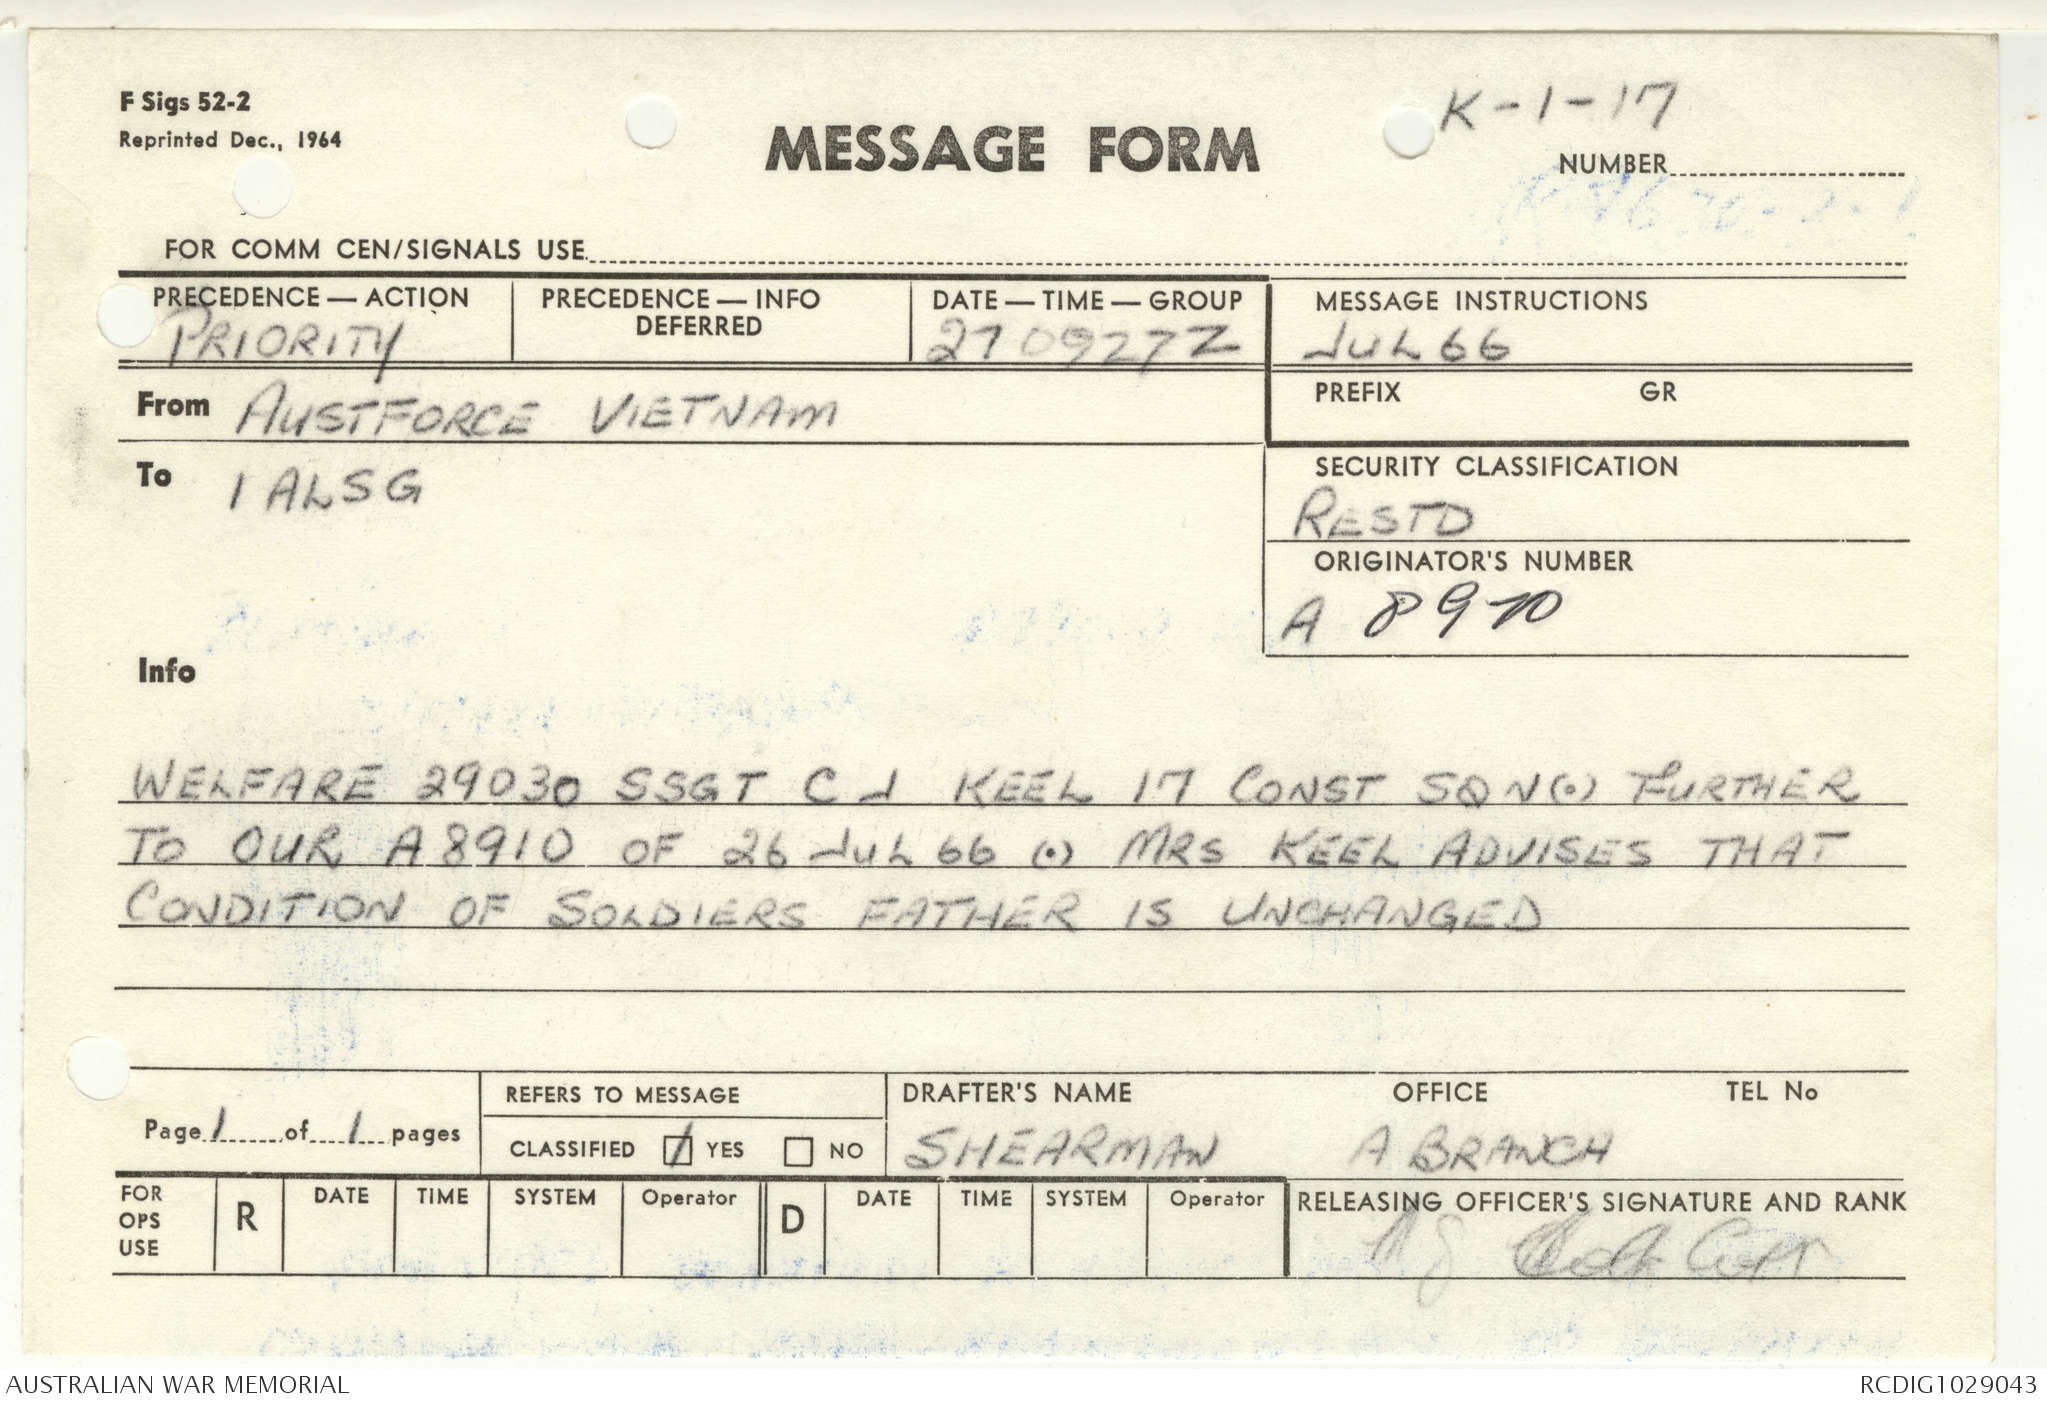 F Sigs 52-2
Reprinted Dec., 1964
MESSAGE FORM
K-1-17
NUMBER
FOR COMM CEN/SIGNALS USE
PRECEDENCE — ACTION
PRIORITY
PRECEDENCE — INFO
DEFERRED
DATE — TIME — GROUP
270927Z
MESSAGE INSTRUCTIONS
JUL 66
From AUSTFORCE VIETNAM
PREFIX GR
To 1 ALSG
SECURITY CLASSIFICATION
RESTD
ORIGINATOR'S NUMBER
A 8970
Info
WELFARE 29030 SSGT C J KEEL 17 CONST SQN(.) FURTHER
TO OUR A8910 OF 26 JUL 66 (.) MRS KEEL ADVISES THAT
CONDITION OF SOLDIERS FATHER IS UNCHANGED
Page 1 of 1 pages
REFERS TO MESSAGE
CLASSIFIED YES NO
DRAFTER'S NAME OFFICE TEL No
SHEARMAN A BRANCH
FOR OPS USE
R DATE TIME SYSTEM Operator
D DATE TIME SYSTEM Operator
RELEASING OFFICER'S SIGNATURE AND RANK
Capt
AUSTRALIAN WAR MEMORIAL
RCDIG1029043